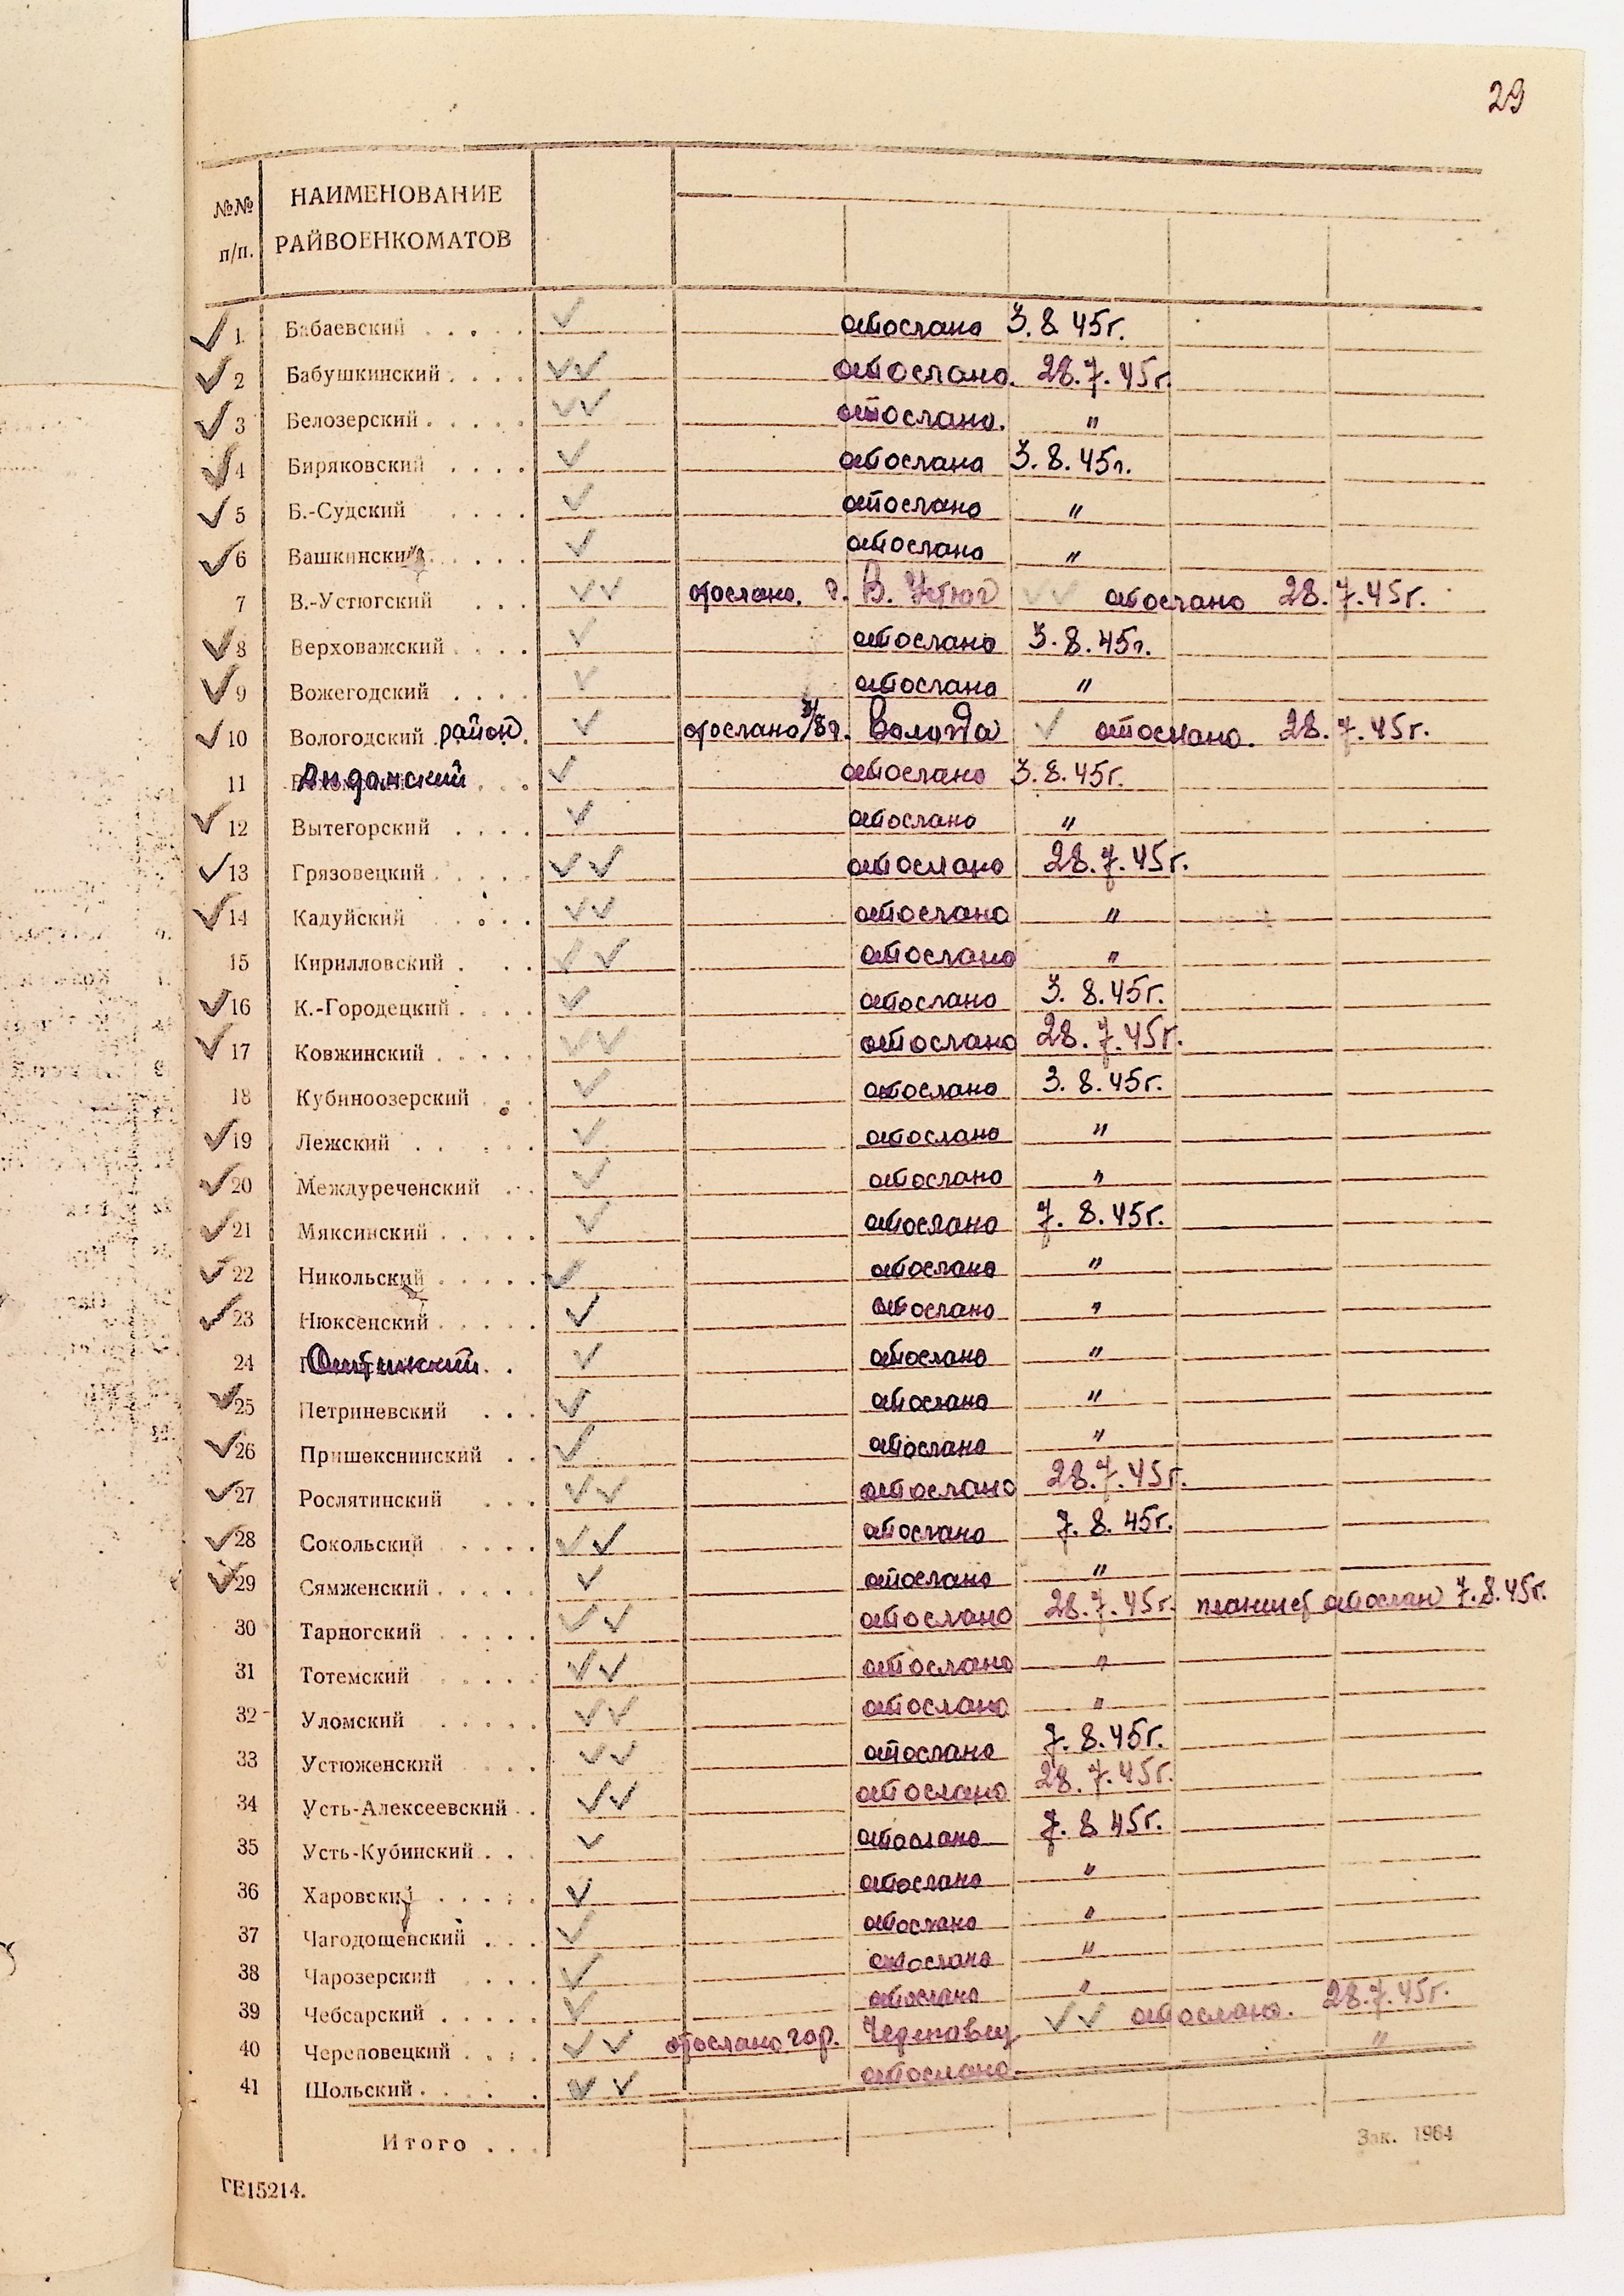 29
№№ п/п. НАИМЕНОВАНИЕ РАЙВОЕНКОМАТОВ
✓ 1 Бабаевский . . . . . ✓ отослано 3.8.45г.
✓ 2 Бабушкинский . . . . ✓✓ отослано. 28.7.45г.
✓ 3 Белозерский . . . . . ✓✓ отослано. "
✓ 4 Биряковский . . . . ✓ отослано 3.8.45г.
✓ 5 Б.-Судский . . . . ✓ отослано "
✓ 6 Вашкинский . . . . ✓ отослано "
7 В.-Устюгский . . . ✓✓ отослано. г. В. Устюг ✓✓ отослано 28.7.45г.
✓ 8 Верховажский . . . . ✓ отослано 3.8.45г.
✓ 9 Вожегодский . . . . ✓ отослано "
✓ 10 Вологодский район ✓ отослано г. Вологда ✓ отослано. 28.7.45г.
11 Андомский . . ✓ отослано 3.8.45г.
✓ 12 Вытегорский . . . . ✓ отослано "
✓ 13 Грязовецкий . . . . . ✓✓ отослано 28.7.45г.
✓ 14 Кадуйский . . . . ✓✓ отослано "
15 Кирилловский . . . ✓✓ отослано "
✓ 16 К.-Городецкий . . . . ✓ отослано 3.8.45г.
✓ 17 Ковжинский . . . . . ✓✓ отослано 28.7.45г.
18 Кубиноозерский . . . ✓ отослано 3.8.45г.
✓ 19 Лежский . . . . . ✓ отослано "
✓ 20 Междуреченский . . ✓ отослано "
✓ 21 Мяксинский . . . . . ✓ отослано 7.8.45г.
✓ 22 Никольский . . . . . ✓ отослано "
✓ 23 Нюксенский . . . . . ✓ отослано "
24 . . ✓ отослано "
✓ 25 Петриневский . . . ✓ отослано "
✓ 26 Пришекснинский . . ✓ отослано "
✓ 27 Рослятинский . . . ✓✓ отослано 28.7.45г.
✓ 28 Сокольский . . . . ✓✓ отослано 7.8.45г.
✓ 29 Сямженский . . . . . ✓ отослано "
30 Тарногский . . . . . ✓✓ отослано 28.7.45г. планшет отослан 7.8.45г.
31 Тотемский . . . . . ✓✓ отослано "
32 Уломский . . . . . ✓✓ отослано "
33 Устюженский . . . . ✓✓ отослано 7.8.45г.
34 Усть-Алексеевский . . ✓✓ отослано 28.7.45г.
35 Усть-Кубинский . . ✓ отослано 7.8 45г.
36 Харовский . . . . . ✓ отослано "
37 Чагодощенский . . . ✓ отослано "
38 Чарозерский . . . . ✓ отослано "
39 Чебсарский . . . . . ✓ отослано "
40 Череповецкий . . . . ✓✓ отослано гор. Череповец ✓✓ отослано. 28.7.45г.
41 Шольский . . . . . ✓✓ отослано. "
Итого . . .
Зак. 1964
ГЕ15214.